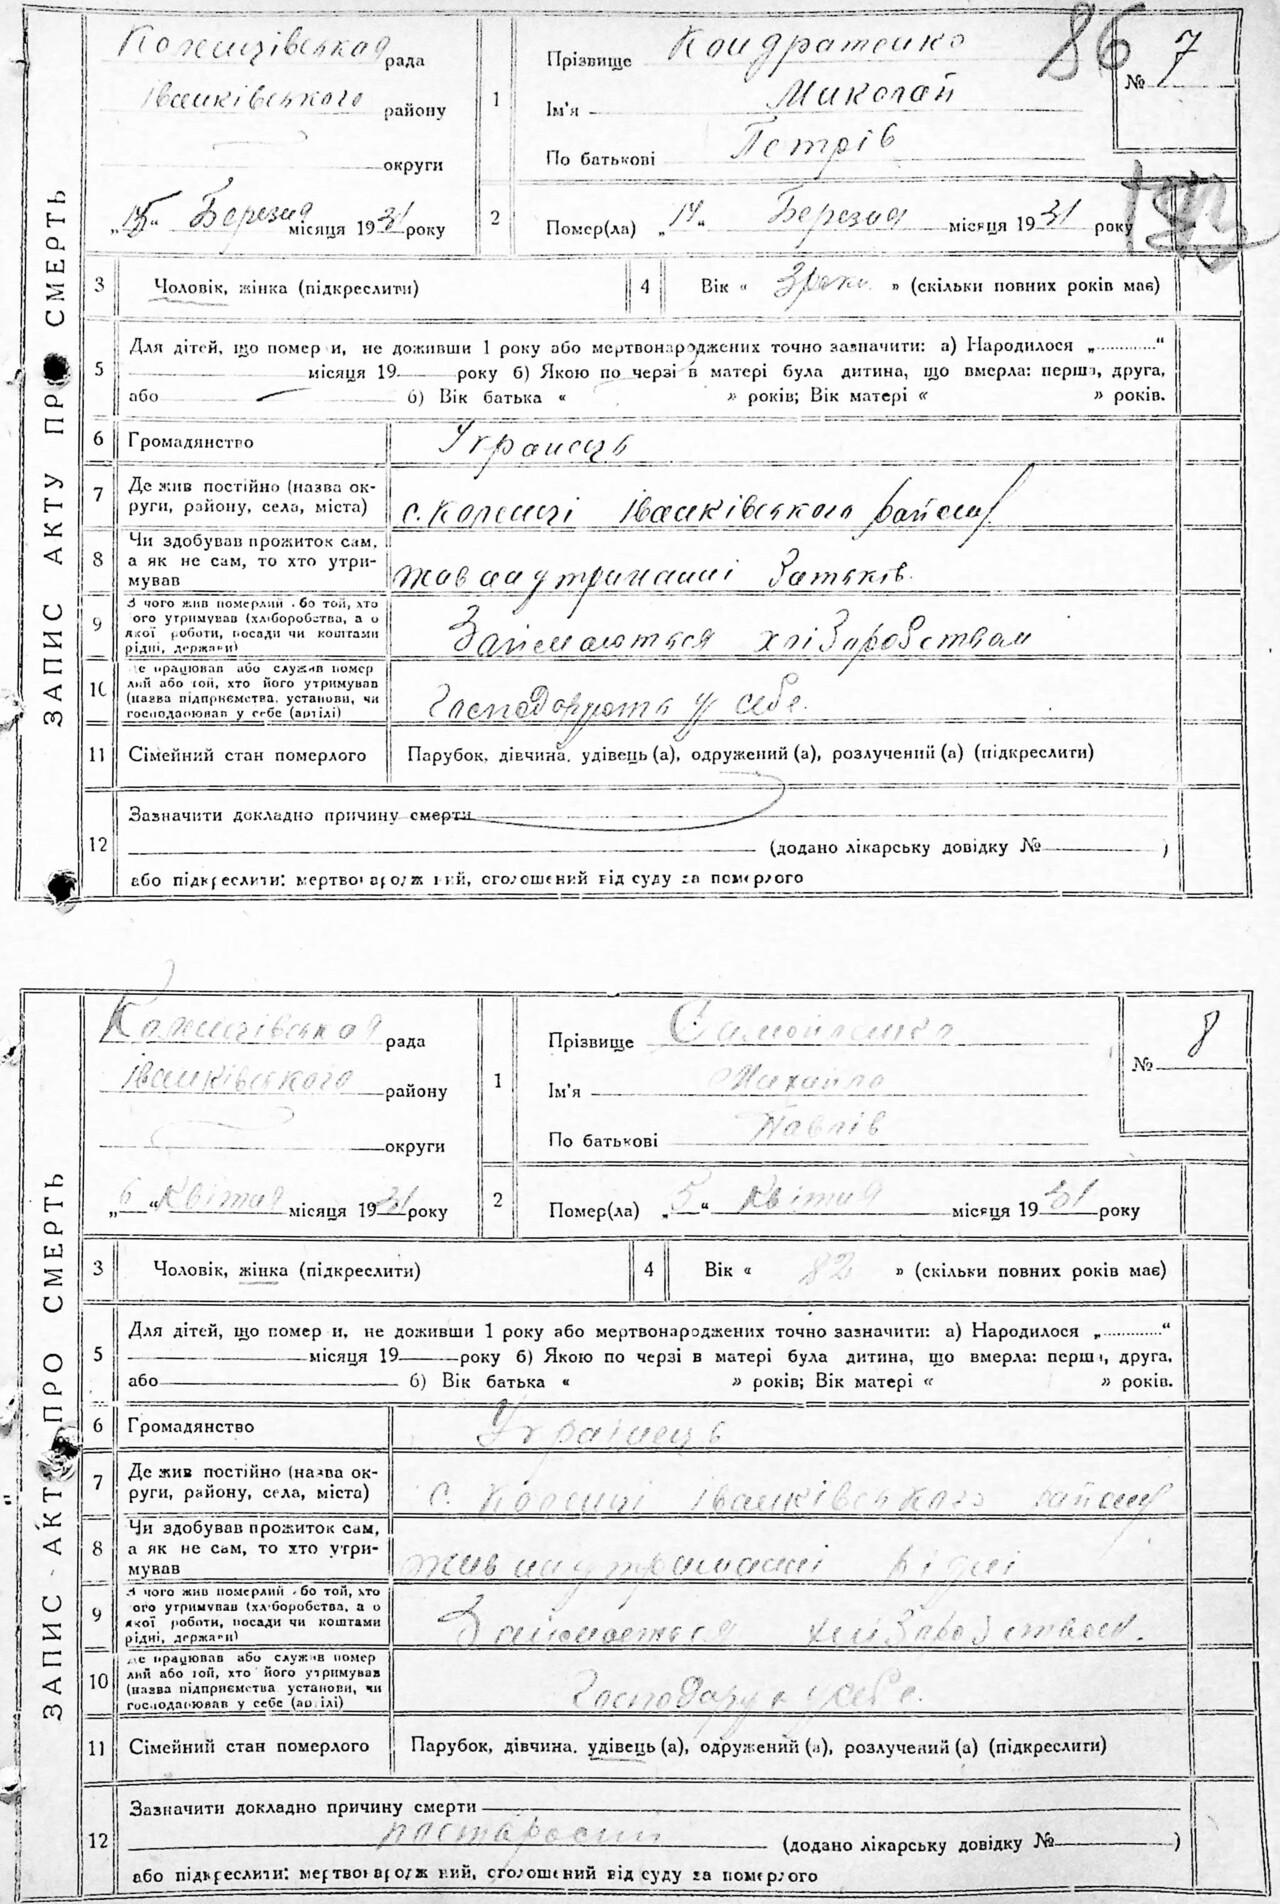 86
ЗАПИС АКТУ ПРО СМЕРТЬ
Коленцівская рада
Іванківського району
округи
„15“ Березня місяця 1931 року
1
Прізвище Кондратенко
Ім'я Миколай
По батькові Петрів
№ 7
2
Помер(ла) „14“ Березня місяця 1931 року
3 Чоловік, жінка (підкреслити)
4 Вік « 3 роки » (скільки повних років має)
5 Для дітей, що померли, не доживши 1 року або мертвонароджених точно зазначити: а) Народилося „............“
місяця 19 року б) Якою по черзі в матері була дитина, що вмерла: перша, друга,
або б) Вік батька « » років; Вік матері « » років.
6 Громадянство Українець
7 Де жив постійно (назва округи, району, села, міста) с. Коленці Іванківського району
8 Чи здобував прожиток сам, а як не сам, то хто утримував жив на утриманні батьків.
9 З чого жив померлий або той, хто його утримував (хліборобства, а о якої роботи, посади чи коштами рідні, держави) Займаються хліборобством
10 Де працював або служив помер лий або той, хто його утримував (назва підприємства, установи, чи господарював у себе (артілі) Господарюють у себе.
11 Сімейний стан померлого Парубок, дівчина, удівець (а), одружений (а), розлучений (а) (підкреслити)
12 Зазначити докладно причину смерти
(додано лікарську довідку № )
або підкреслити: мертвонароджений, оголошений від суду за померлого
ЗАПИС АКТУ ПРО СМЕРТЬ
Коленцівская рада
Іванківського району
округи
„6“ Квітня місяця 1931 року
1
Прізвище Самойленко
Ім'я Михайло
По батькові Павлів
№ 8
2
Помер(ла) „5“ Квітня місяця 1931 року
3 Чоловік, жінка (підкреслити)
4 Вік « 82 » (скільки повних років має)
5 Для дітей, що померли, не доживши 1 року або мертвонароджених точно зазначити: а) Народилося „............“
місяця 19 року б) Якою по черзі в матері була дитина, що вмерла: перша, друга,
або б) Вік батька « » років; Вік матері « » років.
6 Громадянство Українець
7 Де жив постійно (назва округи, району, села, міста) с. Коленці Іванківського району
8 Чи здобував прожиток сам, а як не сам, то хто утримував жив на утриманні рідні
9 З чого жив померлий або той, хто його утримував (хліборобства, а о якої роботи, посади чи коштами рідні, держави) Займається хліборобством.
10 Де працював або служив помер лий або той, хто його утримував (назва підприємства, установи, чи господарював у себе (артілі) Господарює у себе.
11 Сімейний стан померлого Парубок, дівчина, удівець (а), одружений (а), розлучений (а) (підкреслити)
12 Зазначити докладно причину смерти
(додано лікарську довідку № )
або підкреслити: мертвонароджений, оголошений від суду за померлого